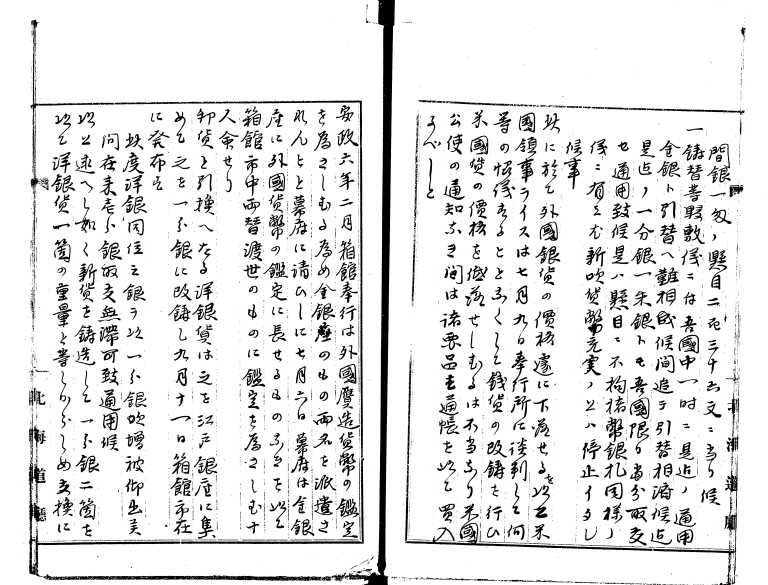 間銀一匁ノ懸目ニ而三千六文ニ当り候
一鋳替善取敷儀ニは吾國中一時ニ是迄ノ通用
金銀ト引替へ難相成候間追テ引替相済候迄
是迄ノ一分銀一朱銀トモ吾國限り当分取交
セ通用致候是ハ懸目ニ不拘楮幣銀札同様ノ
儀ニ有之尤新吹貨幣充実ノ上ハ停止イタシ
候事
此に於て外國銀貨の價格遽に下落せるを以て米
國領事ライスは七月九日奉行所に談判して何
等の怪儀あることなくして銭貨の改鋳を行ひ
米國貨の價格を低落せしむるは不当なり米國
公使の通知なき間は諸要品を通帳を以て買入
るべしと
安政六年二月箱館奉行は外國贋造貨幣の鑑定
を為さしむる為め金銀座のもの両名を派遣さ
れんことを幕府に請ひしに七月六日幕府は金銀
座に外國貨幣の鑑定に長せるものなきを以て
箱館市中両替渡世のものに鑑定を為さしむ十
人余せり
新貨と引換へたる洋銀貨は之を江戸銀座に集
めて之を一分銀に改鋳し九月十一日箱館市在
に発布す
此度洋銀同位之銀ヲ以一分銀吹増被仰出是
問在来壱分銀取交無滞可致通用候
以上述へし如く新貨を鋳造して一分銀二箇を
以て洋銀貨一箇の重量と等しからしめ交換に
北海道廳
北海道廳